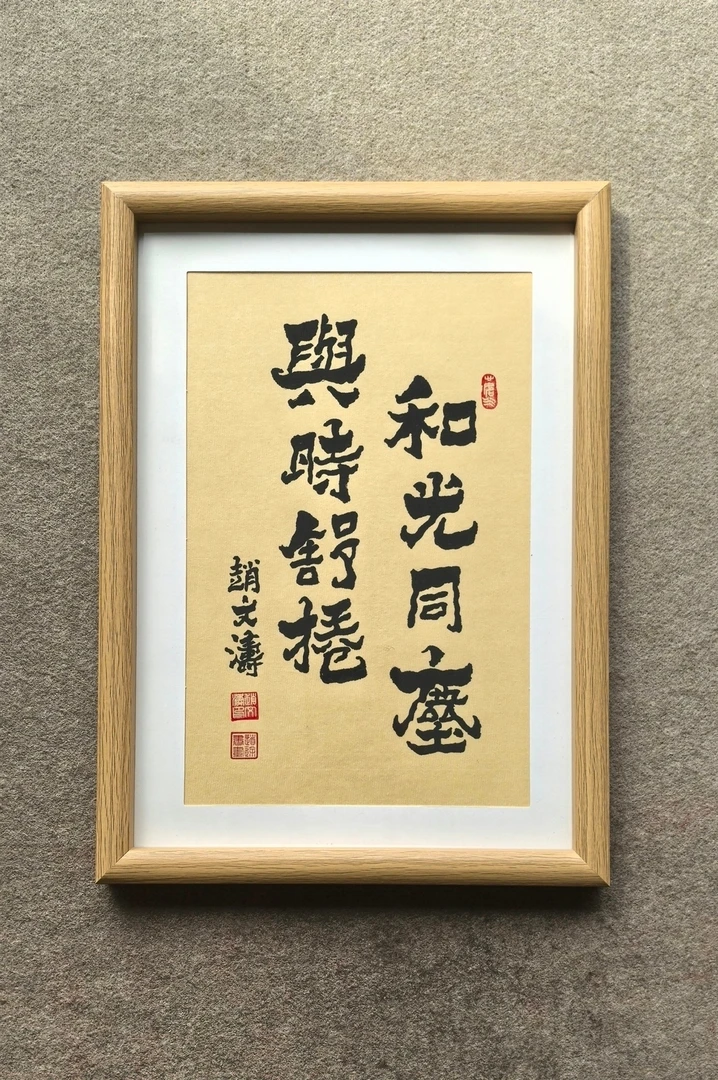 和光同塵
與時舒捲
趙文濤